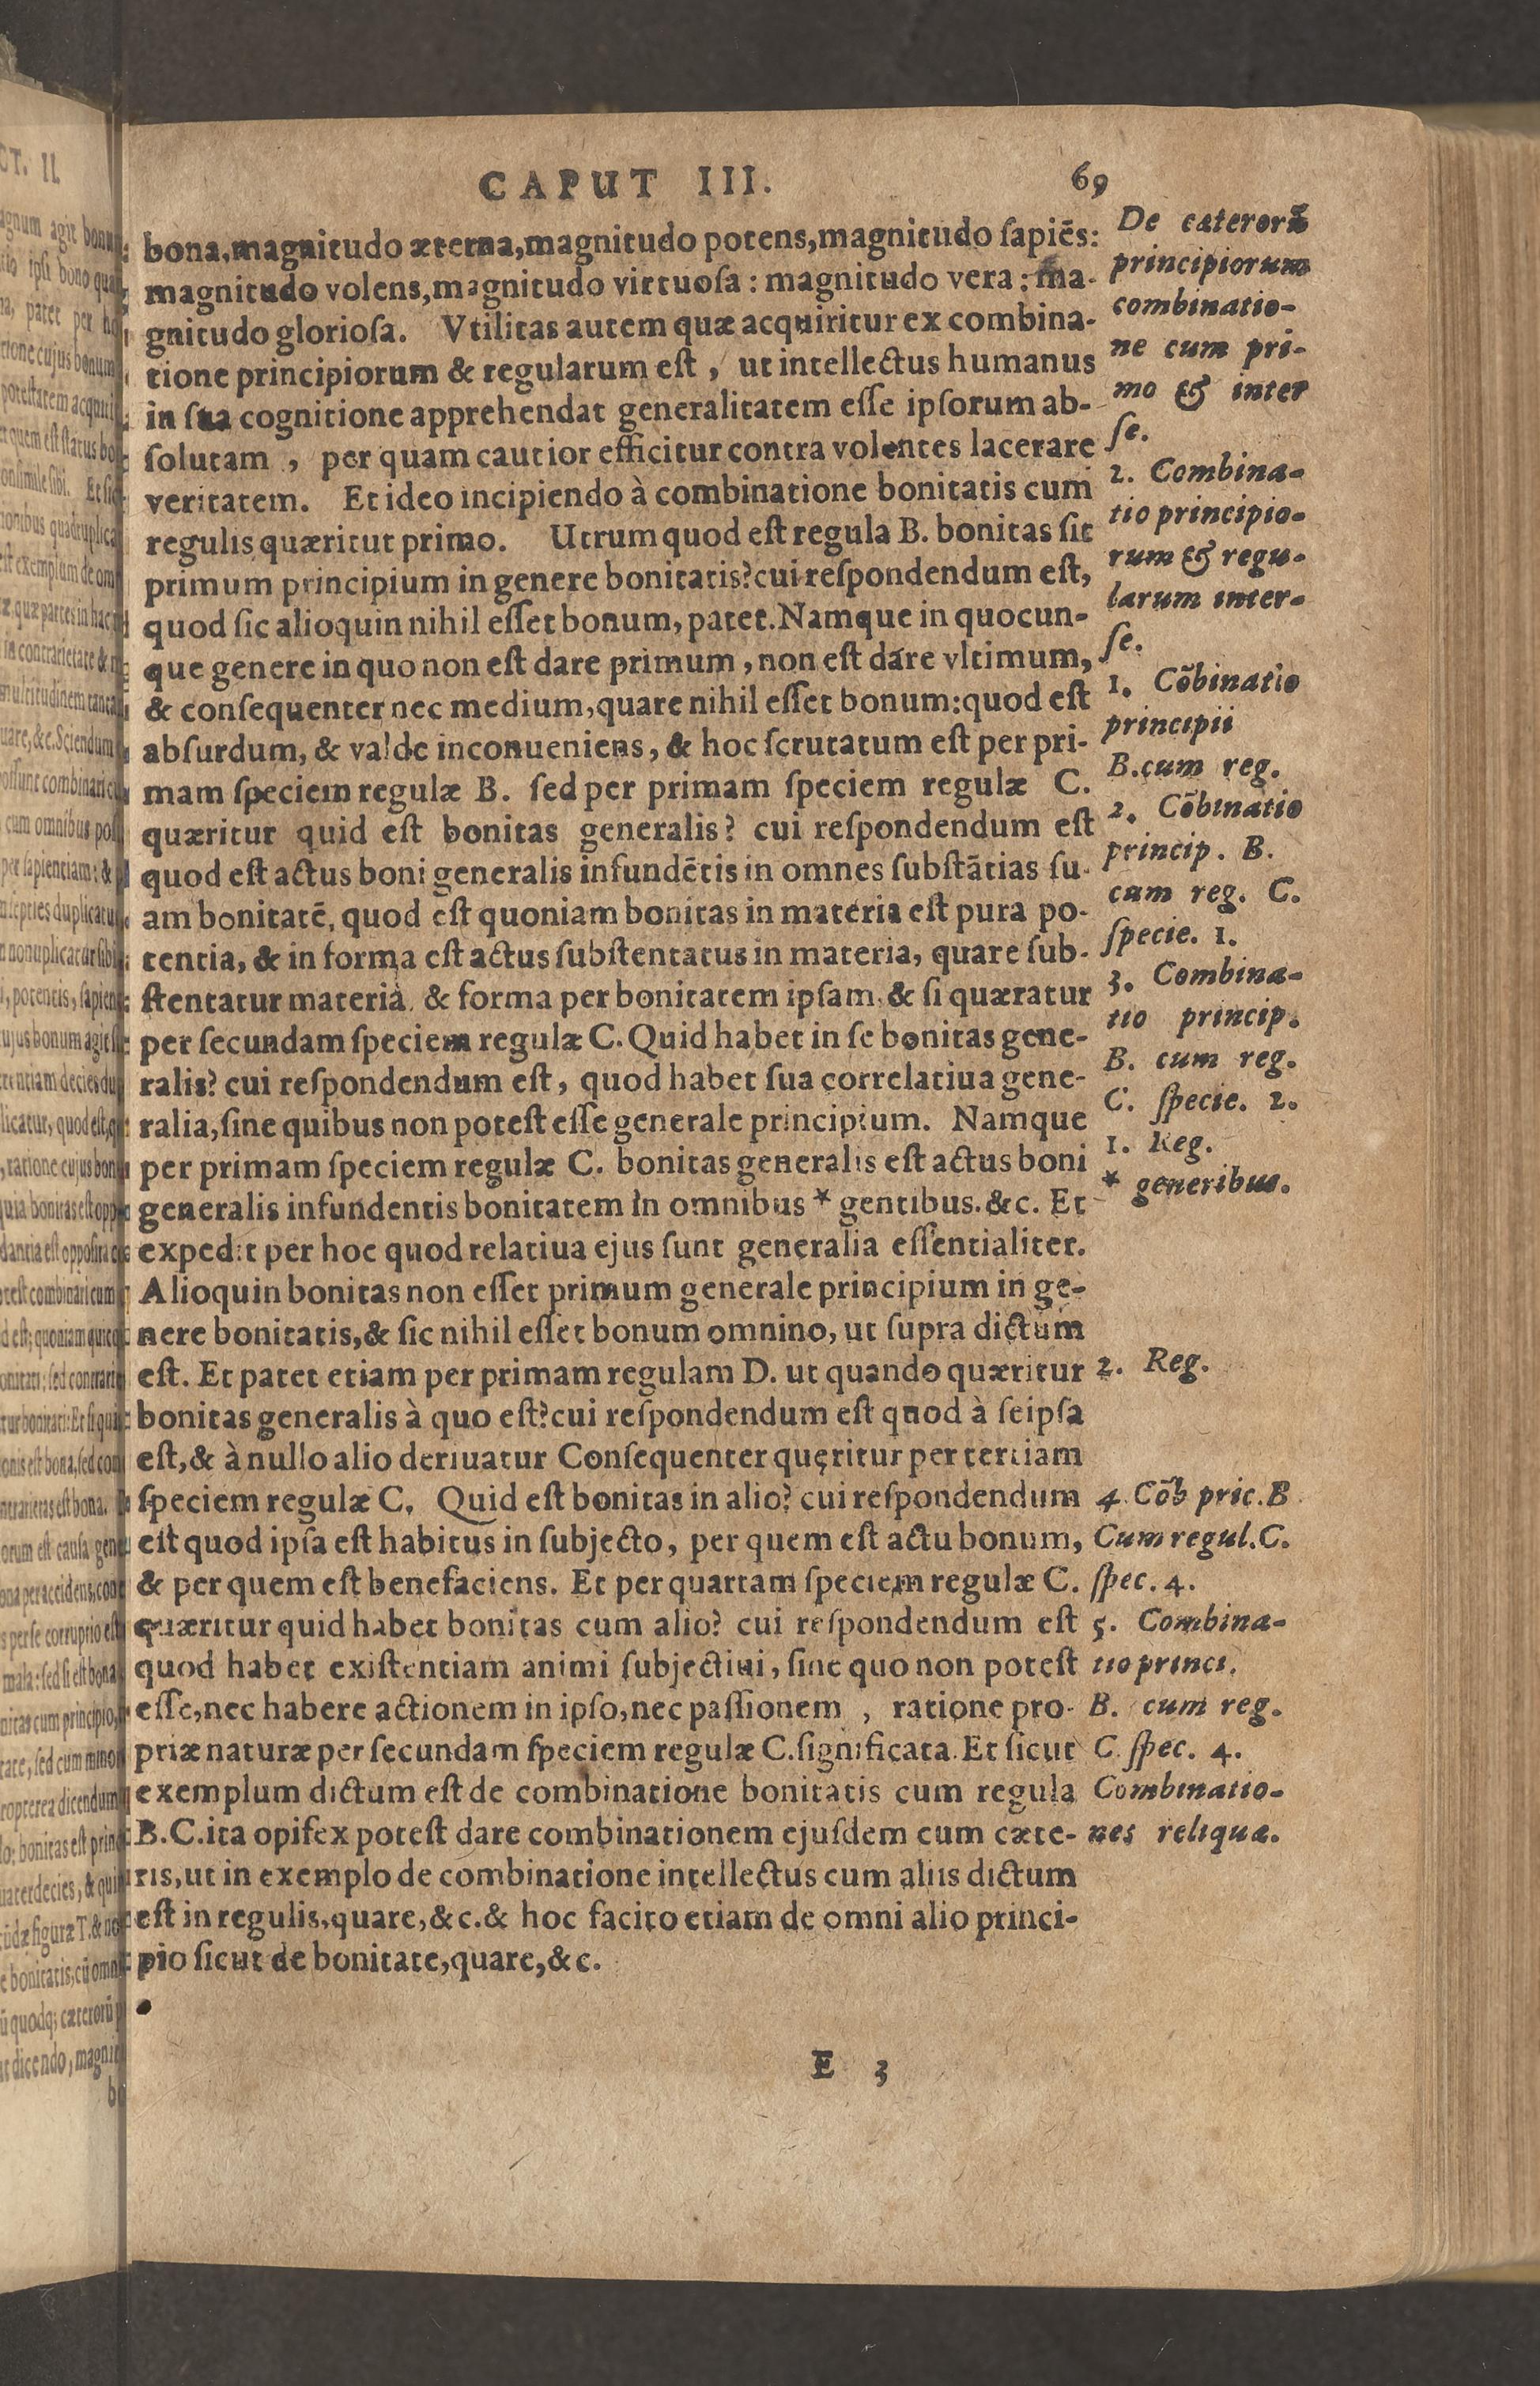 CAPUT III. 69
bona, magnitudo æterna, magnitudo potens, magnitudo ſapiẽs:
magnitudo volens, magnitudo virtuoſa: magnitudo vera: ma-
gnitudo glorioſa. Vtilitas autem quæ acquiritur ex combina-
tione principiorum & regularum eſt, ut intellectus humanus
in ſua cognitione apprehendat generalitatem eſſe ipſorum ab-
ſolutam, per quam cautior efficitur contra volentes lacerare
veritatem. Et ideo incipiendo à combinatione bonitatis cum
regulis quæritut primo. Utrum quod eſt regula B. bonitas ſit
primum principium in genere bonitatis? cui reſpondendum eſt,
quod ſic alioquin nihil eſſet bonum, patet. Namque in quocun-
que genere in quo non eſt dare primum, non eſt dare vltimum,
& conſequenter nec medium, quare nihil eſſet bonum: quod eſt
abſurdum, & valde inconueniens, & hoc ſcrutatum eſt per pri-
mam ſpeciem regulæ B. ſed per primam ſpeciem regulæ C.
quæritur quid eſt bonitas generalis? cui reſpondendum eſt
quod eſt actus boni generalis infundẽtis in omnes ſubſtãtias ſu-
am bonitatẽ, quod eſt quoniam bonitas in materia eſt pura po-
tentia, & in forma eſt actus ſubſtentatus in materia, quare ſub-
ſtentatur materia. & forma per bonitatem ipſam, & ſi quæratur
per ſecundam ſpeciem regulæ C. Quid habet in ſe bonitas gene-
ralis? cui reſpondendum eſt, quod habet ſua correlatiua gene-
ralia, ſine quibus non poteſt eſſe generale principium. Namque
per primam ſpeciem regulæ C. bonitas generalis eſt actus boni
generalis infundentis bonitatem in omnibus * gentibus. &c. Et
expedit per hoc quod relatiua ejus ſunt generalia eſſentialiter.
Alioquin bonitas non eſſet primum generale principium in ge-
nere bonitatis, & ſic nihil eſſet bonum omnino, ut ſupra dictum
eſt. Et patet etiam per primam regulam D. ut quando quæritur
bonitas generalis à quo eſt? cui reſpondendum eſt quod à ſeipſa
eſt, & à nullo alio deriuatur Conſequenter quęritur per tertiam
ſpeciem regulæ C. Quid eſt bonitas in alio? cui reſpondendum
eſt quod ipſa eſt habitus in ſubjecto, per quem eſt actu bonum,
& per quem eſt benefaciens. Et per quartam ſpeciem regulæ C.
quæritur quid habet bonitas cum alio? cui reſpondendum eſt
quod habet exiſtentiam animi ſubjectiui, ſine quo non poteſt
eſſe, nec habere actionem in ipſo, nec paſſionem, ratione pro-
priæ naturæ per ſecundam ſpeciem regulæ C. ſignificata. Et ſicut
exemplum dictum eſt de combinatione bonitatis cum regula
B. C. ita opifex poteſt dare combinationem ejuſdem cum cæte-
ris, ut in exemplo de combinatione intellectus cum aliis dictum
eſt in regulis, quare, &c. & hoc facito etiam de omni alio princi-
pio ſicut de bonitate, quare, &c.
E 3
De cæterorũ
principiorum
combinatio-
ne cum pri-
mo & inter
ſe.
2. Combina-
tio principio-
rum & regu-
larum inter-
ſe.
1. Cõbinatio
principii
B. cum reg.
2. Cõbinatio
princip. B.
cum reg. C.
ſpecie. 1.
3. Combina-
tio princip.
B. cum reg.
C. ſpecie. 2.
1. Reg.
* generibus.
2. Reg.
4. Cõb pric. B
Cum regul. C.
ſpec. 4.
5. Combina-
tio princi.
B. cum reg.
C. ſpec. 4.
Combinatio-
nes reliquæ.